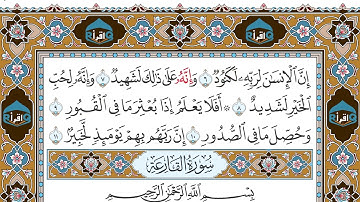 إِنَّ ٱلْإِنسَٰنَ لِرَبِّهِۦ لَكَنُودٌ ٦ وَإِنَّهُۥ عَلَىٰ ذَٰلِكَ لَشَهِيدٌ ٧ وَإِنَّهُۥ لِحُبِّ
ٱلْخَيْرِ لَشَدِيدٌ ٨ ۞ أَفَلَا يَعْلَمُ إِذَا بُعْثِرَ مَا فِي ٱلْقُبُورِ ٩
وَحُصِّلَ مَا فِي ٱلصُّدُورِ ١٠ إِنَّ رَبَّهُم بِهِمْ يَوْمَئِذٍ لَّخَبِيرٌۢ ١١
سُورَةُ ٱلْقَارِعَةِ
بِسْمِ ٱللَّهِ ٱلرَّحْمَٰنِ ٱلرَّحِيمِ
اقرأ
اقرأ